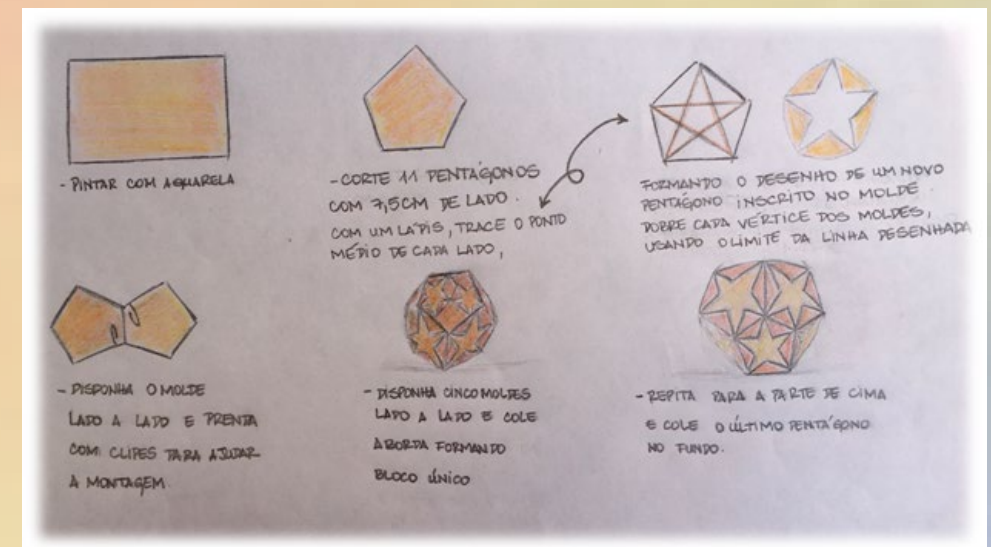 - PINTAR COM AQUARELA
- CORTE 11 PENTÁGONOS
COM 7,5CM DE LADO.
COM UM LÁPIS, TRACE O PONTO
MÉDIO DE CADA LADO,
FORMANDO O DESENHO DE UM NOVO
PENTÁGONO INSCRITO NO MOLDE.
DOBRE CADA VÉRTICE DOS MOLDES,
USANDO O LIMITE DA LINHA DESENHADA
- DISPONHA O MOLDE
LADO A LADO E PRENDA
COM CLIPES PARA AJUDAR
A MONTAGEM.
- DISPONHA CINCO MOLDES
LADO A LADO E COLE
A BORDA FORMANDO
BLOCO ÚNICO
- REPITA PARA A PARTE DE CIMA
E COLE O ÚLTIMO PENTÁGONO
NO FUNDO.